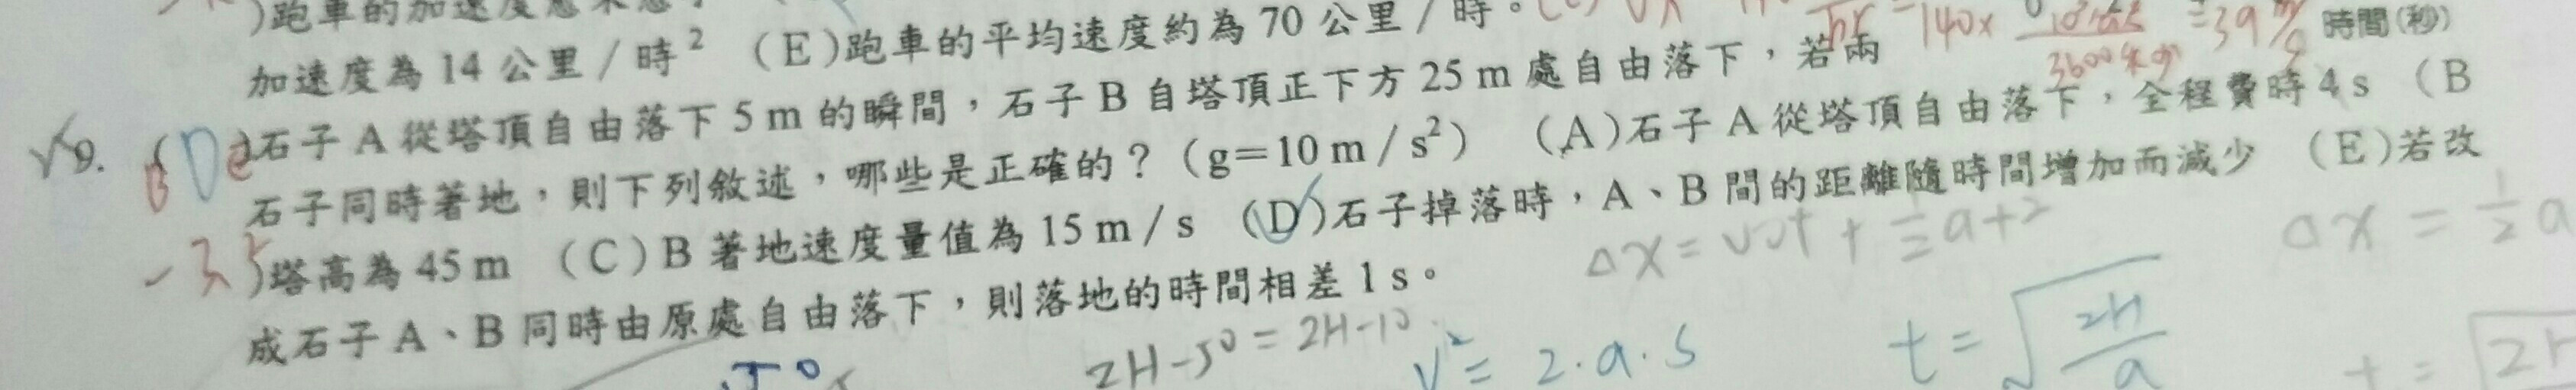 )跑車的加速度
加速度為 14 公里／時² （E）跑車的平均速度約為 70 公里／時。
140x 10³ =39 m/s 時間(秒)
3600
9. 石子 A 從塔頂自由落下 5 m 的瞬間，石子 B 自塔頂正下方 25 m 處自由落下，若兩
石子同時著地，則下列敘述，哪些是正確的？（g＝10 m／s²） （A）石子 A 從塔頂自由落下，全程費時 4 s （B
)塔高為 45 m （C）B 著地速度量值為 15 m／s （D）石子掉落時，A、B 間的距離隨時間增加而減少 （E）若改
成石子 A、B 同時由原處自由落下，則落地的時間相差 1 s。
-3.5
Δx = v0t + 1/2 at2
Δx = 1/2 a
2H-50 = 2H-10
V² = 2·a·s
t = √2H/a
t = √2H